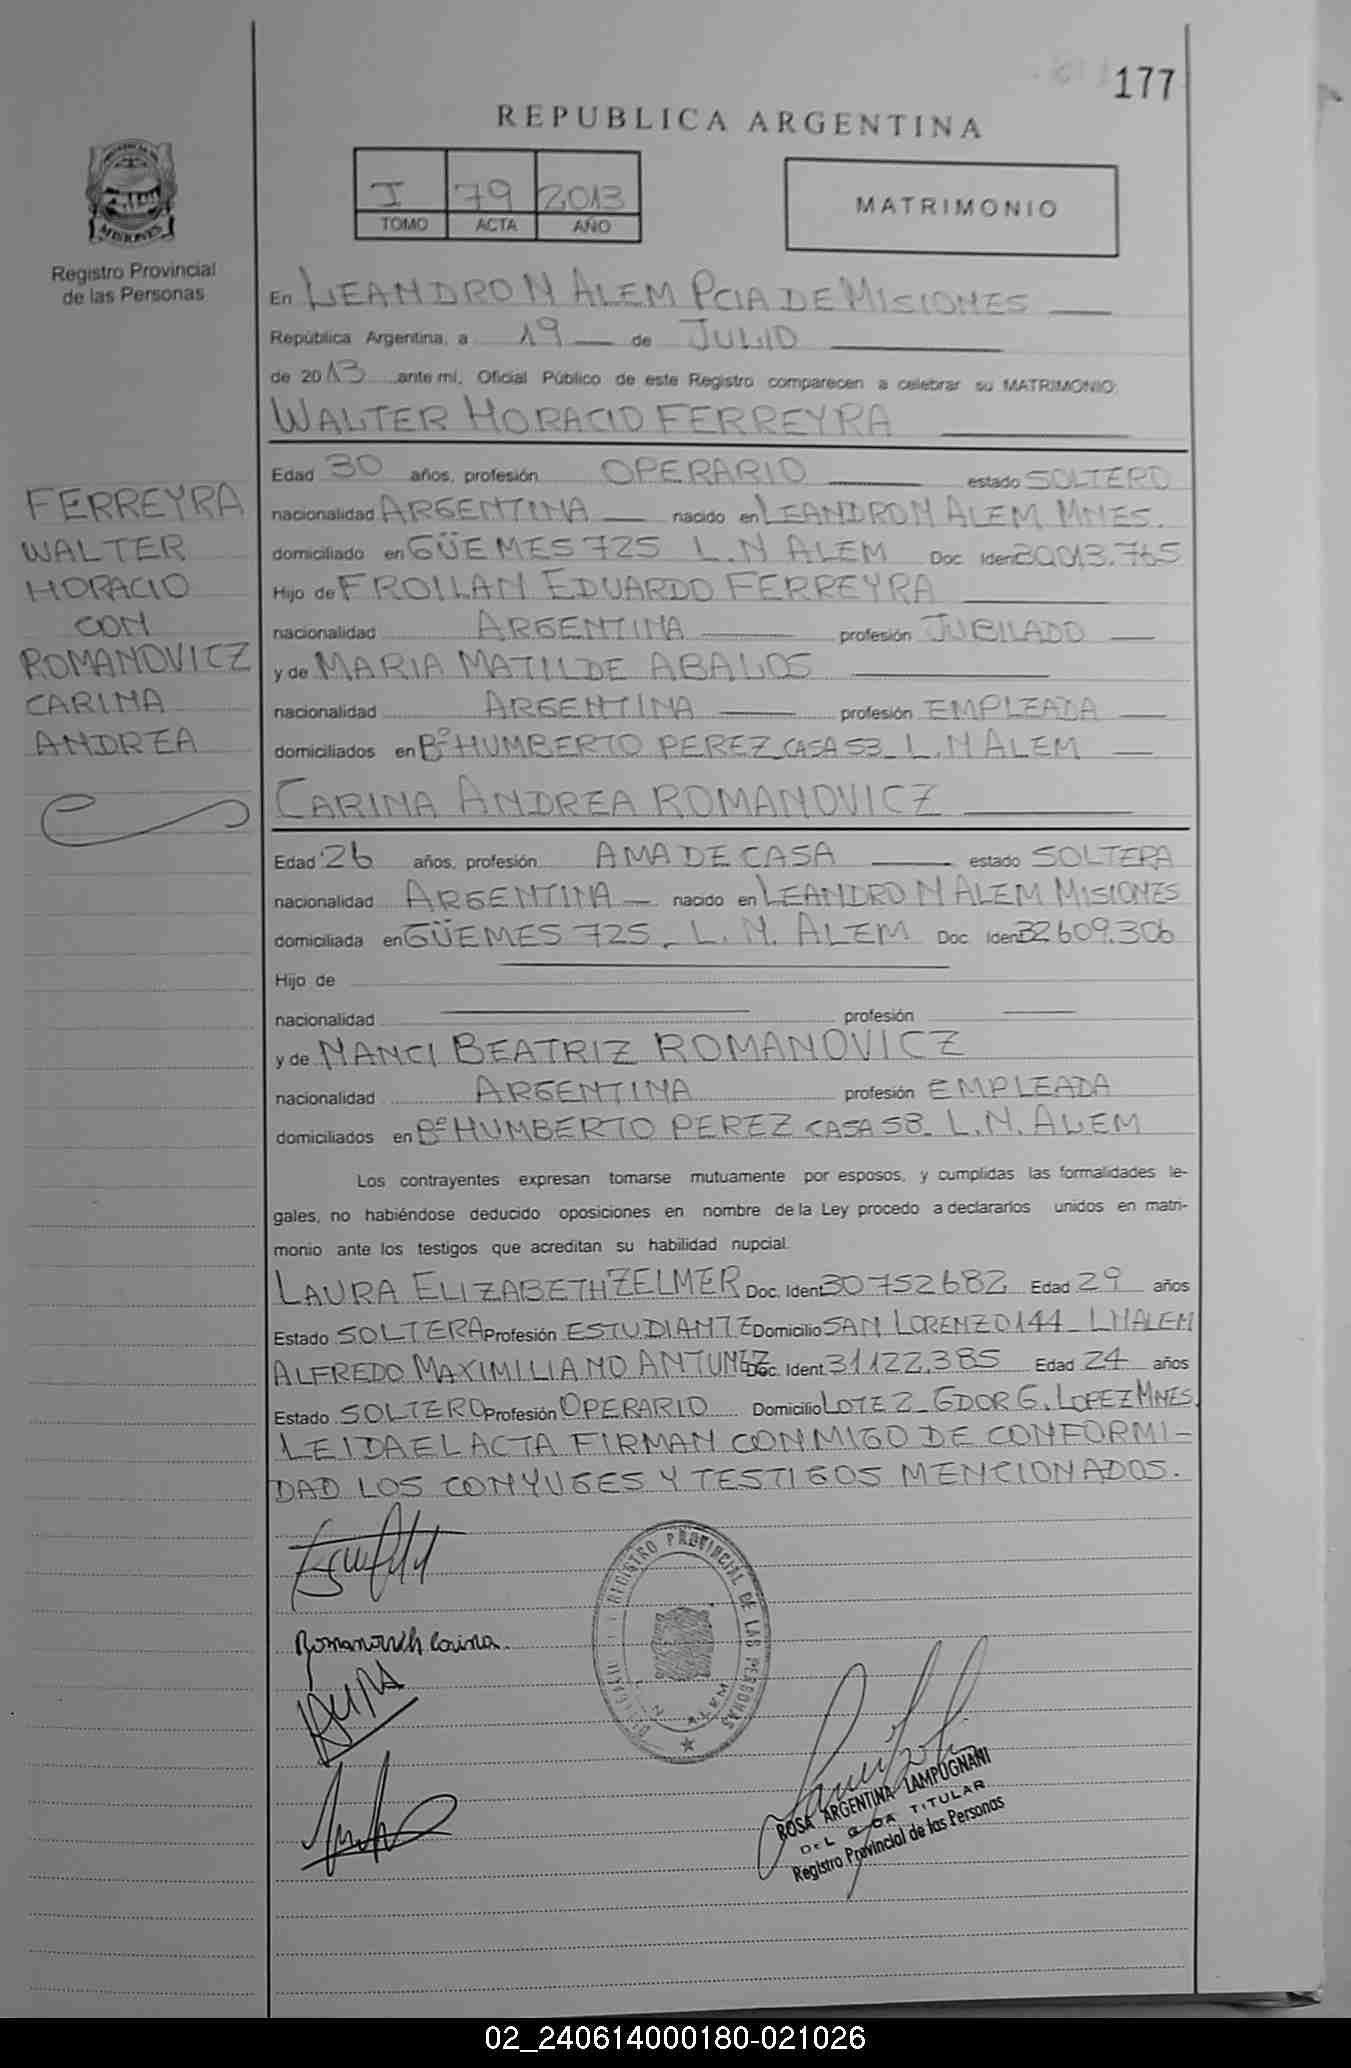 177
REPUBLICA ARGENTINA
I 79 2013
TOMO ACTA AÑO
MATRIMONIO
MISIONES
Registro Provincial
de las Personas
FERREYRA
WALTER
HORACIO
CON
ROMANOVICZ
CARINA
ANDREA
En LEANDRO N ALEM PCIA DE MISIONES
República Argentina, a 19 de JULIO
de 2013 ante mí, Oficial Público de este Registro comparecen a celebrar su MATRIMONIO:
WALTER HORACIO FERREYRA
Edad 30 años, profesión OPERARIO estado SOLTERO
nacionalidad ARGENTINA nacido en LEANDRO N ALEM MNES.
domiciliado en GÜEMES 725 L.N ALEM Doc. Iden 30.013.765
Hijo de FROILAN EDUARDO FERREYRA
nacionalidad ARGENTINA profesión JUBILADO
y de MARIA MATILDE ABALOS
nacionalidad ARGENTINA profesión EMPLEADA
domiciliados en Bº HUMBERTO PEREZ CASA 53_ L.N ALEM
CARINA ANDREA ROMANOVICZ
Edad 26 años, profesión AMA DE CASA estado SOLTERA
nacionalidad ARGENTINA nacido en LEANDRO N ALEM MISIONES
domiciliada en GÜEMES 725_ L. N. ALEM Doc. Iden 32609.306
Hijo de
nacionalidad profesión
y de NANCI BEATRIZ ROMANOVICZ
nacionalidad ARGENTINA profesión EMPLEADA
domiciliados en Bº HUMBERTO PEREZ CASA 58_ L.N. ALEM
Los contrayentes expresan tomarse mutuamente por esposos, y cumplidas las formalidades le-
gales, no habiéndose deducido oposiciones en nombre de la Ley procedo a declararlos unidos en matri-
monio ante los testigos que acreditan su habilidad nupcial.
LAURA ELIZABETH ZELMER Doc. Ident 30752682 Edad 29 años
Estado SOLTERA Profesión ESTUDIANTE Domicilio SAN LORENZO 144_ LNALEM
ALFREDO MAXIMILIANO ANTUNEZ Doc. Ident. 31.122.385 Edad 24 años
Estado SOLTERO Profesión OPERARIO Domicilio LOTE 2_ GDOR G. LOPEZ MNES.
LEIDA EL ACTA FIRMAN CONMIGO DE CONFORMI-
DAD LOS CONYUGES Y TESTIGOS MENCIONADOS.
REGISTRO PROVINCIAL DE LAS PERSONAS
Romanovich Carina.
ROSA ARGENTINA LAMPUGNANI
TITULAR
Registro Provincial de las Personas
02_240614000180-021026